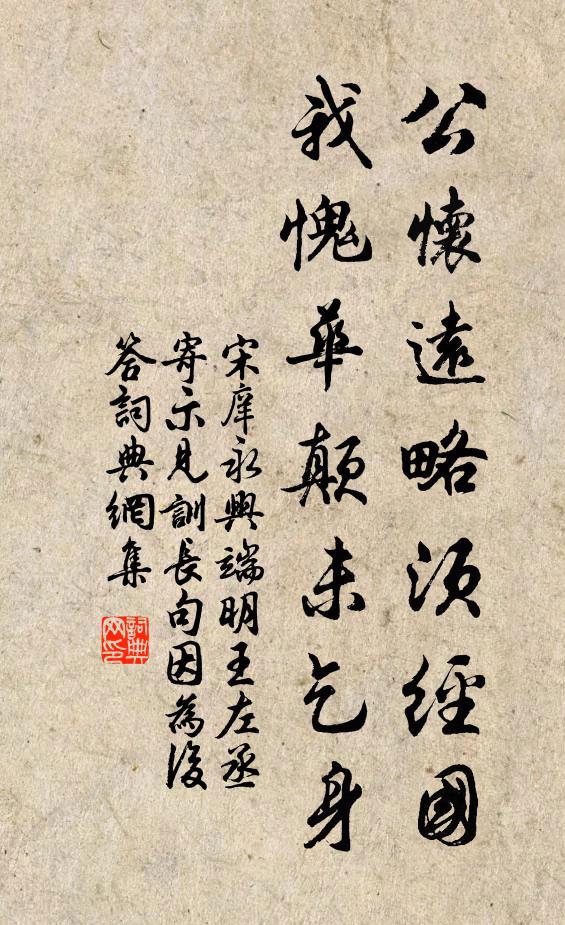 公懷遠略須經國
我愧華顛未乞身
宋庠永興端明王左丞
寄示見訓長句因為復
答詞典網集
詞典
网印